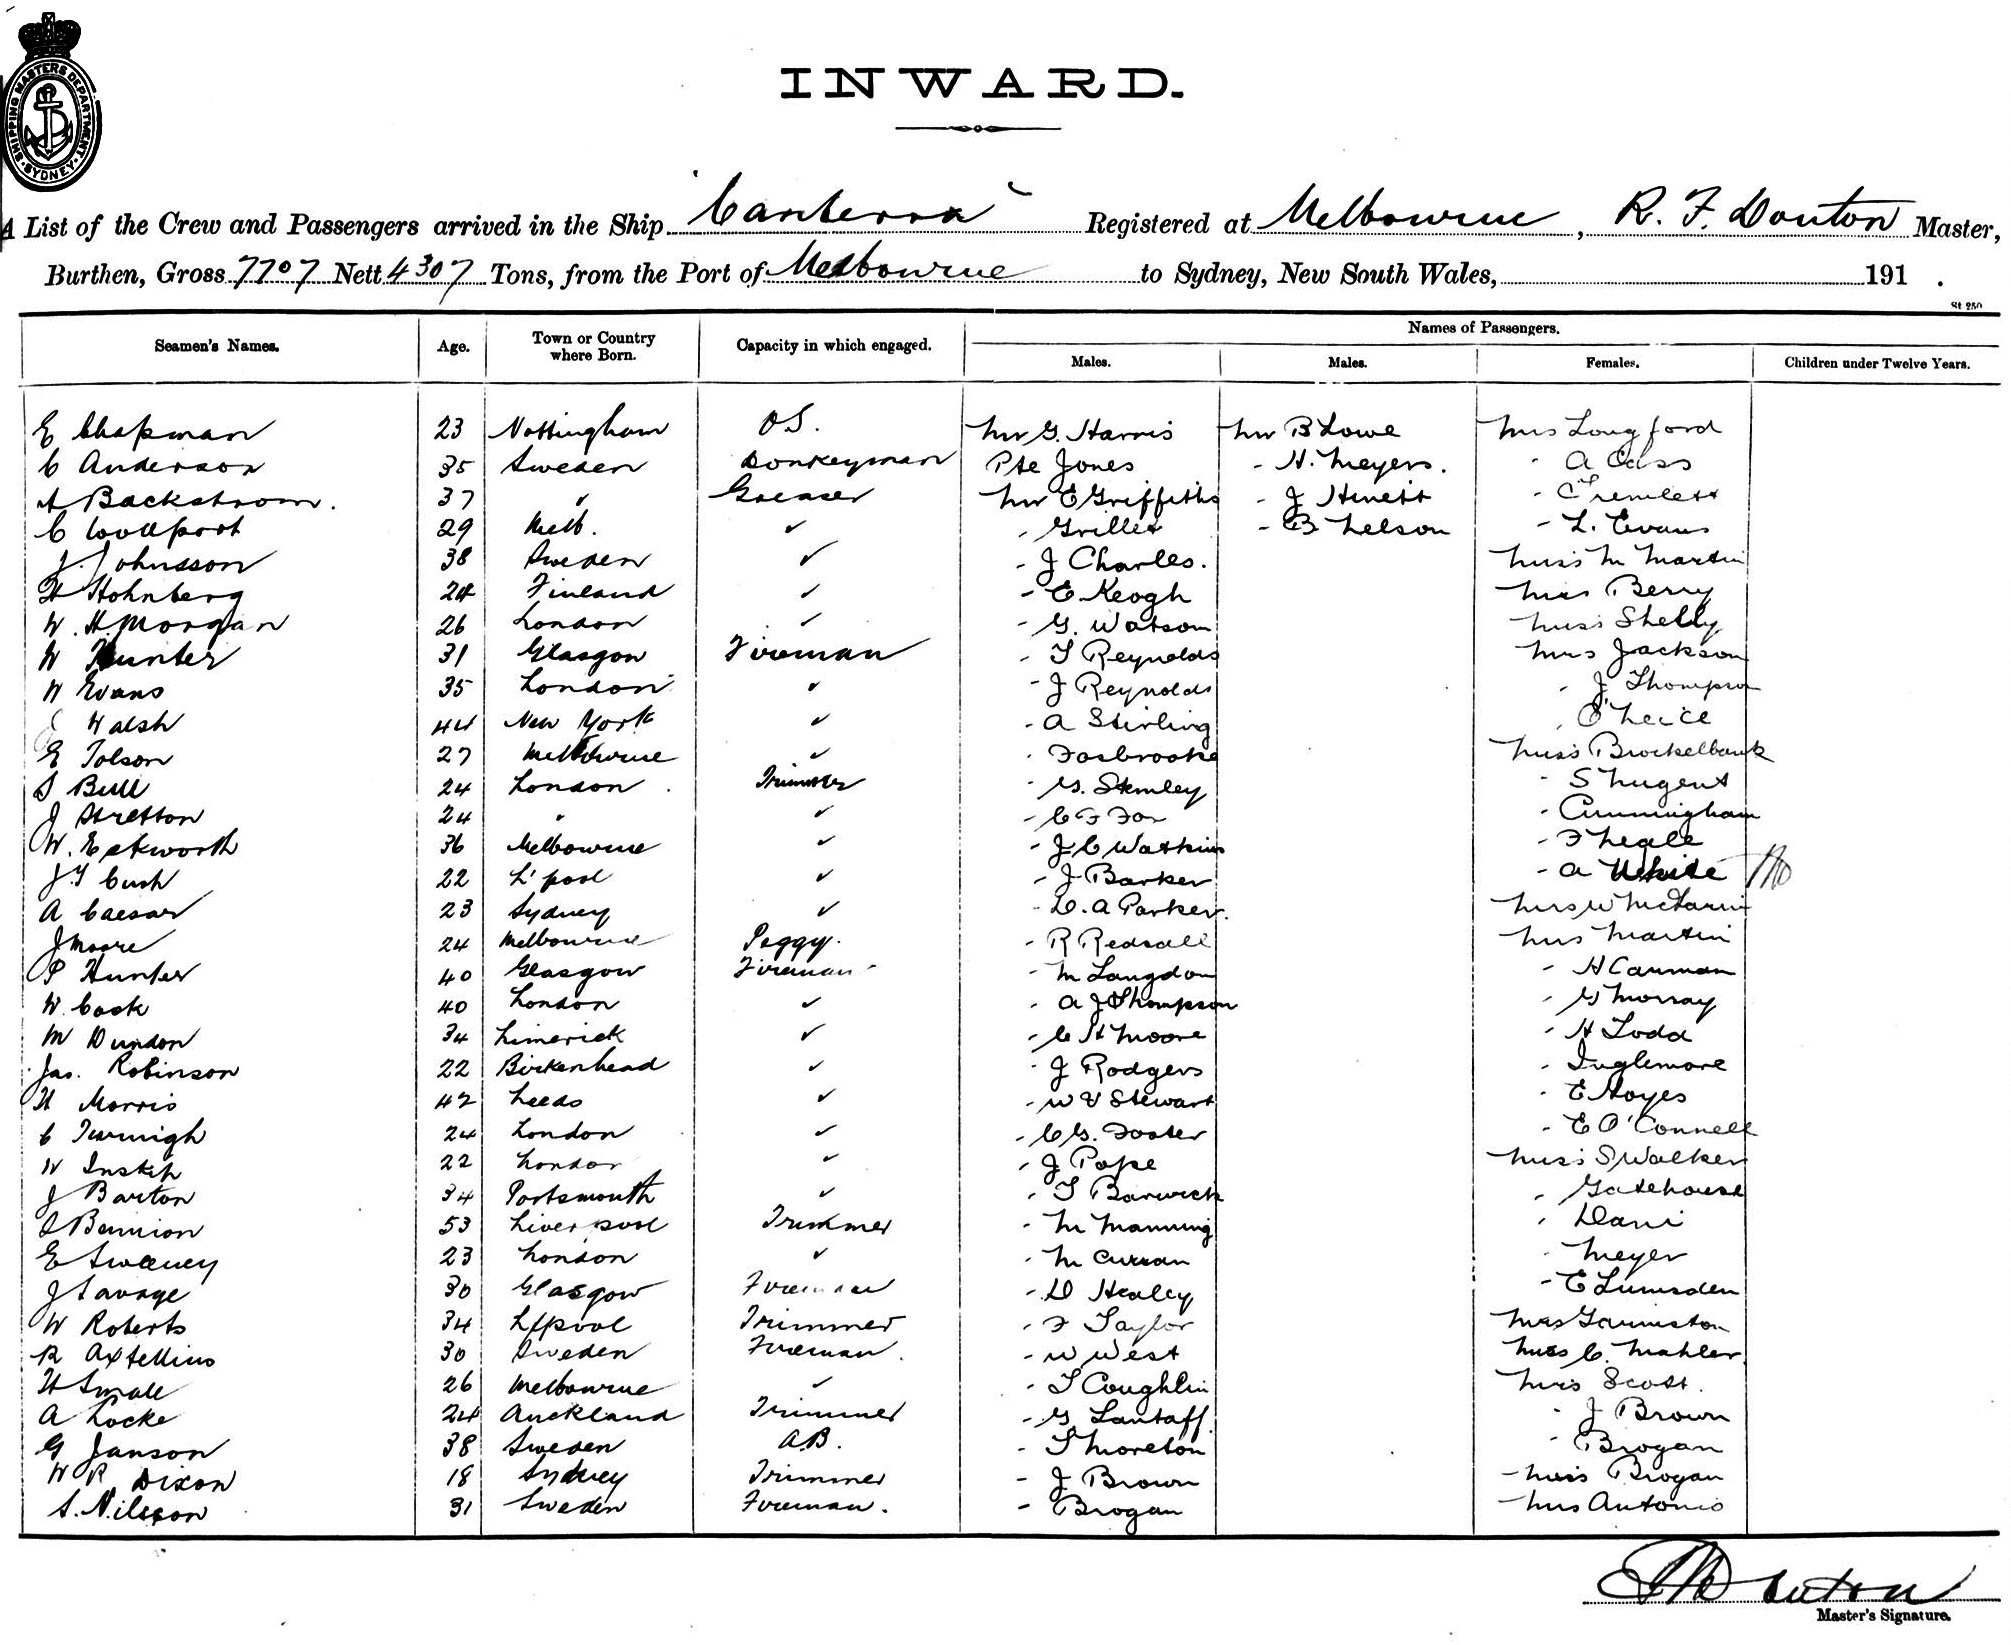 SHIPPING MASTERS DEPARTMENT · SYDNEY ·
INWARD.
A List of the Crew and Passengers arrived in the Ship "Canberra" Registered at Melbourne, R. F. Douton Master,
Burthen, Gross 7707 Nett 4307 Tons, from the Port of Melbourne to Sydney, New South Wales, 191 .
St 250
Names of Passengers.
Seamen's Names. Age. Town or Country where Born. Capacity in which engaged. Males. Males. Females. Children under Twelve Years.
E Chapman 23 Nottingham O.S. Mr G. Harris Mr B Lowe Mrs Longford
C Anderson 35 Sweden Donkeyman Pte Jones - H. Meyers. - A Cass
A Backstrom. 37 " Greaser Mr E Griffiths - J Hewett - Tremlett
C Woolfoot 29 Melb. ✓ - Griller - B Nelson - L. Evans
J. Johnsson 38 Sweden ✓ - J Charles. Miss M Martin
H Hohnberg 24 Finland ✓ - E Keogh Miss Berry
W. H. Morgan 26 London ✓ - G. Watson Miss Shelly
W Hunter 31 Glasgow Fireman - T Reynolds Mrs Jackson
W Evans 35 London ✓ - J Reynolds - J Thompson
J Walsh 44 New York ✓ - A Stirling - O'Neill
E Tolson 27 Melbourne ✓ - Fosbrooke Miss Brockelbank
S Bull 24 London Trimmer - G. Stanley - S Nugent
J Stretton 24 " ✓ - C F Fox - Cunningham
W. Eckworth 36 Melbourne ✓ - J C Watkins - F Neale
J T Cush 22 L'pool ✓ - J Barker - A White
A Caesar 23 Sydney ✓ - D. A Parker. Mrs W
J Moore 24 Melbourne Peggy. - R Redsall Mrs Martin
P Hunter 40 Glasgow Fireman - M Langdon - H Carman
W. Cook 40 London ✓ - A J Thompson - G Murray
M Dundon 34 Limerick ✓ - C H Moore - H Todd
Jas. Robinson 22 Birkenhead ✓ - J Rodgers - Inglemore
H Morris 42 Leeds ✓ - W V Stewart - E Noyes
C 24 London ✓ - C G. Foster - E O'Connell
W Inskip 22 London ✓ - J Pope Miss S Walker
J Barton 34 Portsmouth ✓ - T Barwick - Gatehouse
Bunnion 53 Liverpool Trimmer - M Manning - Dani
E Sweeney 23 London ✓ - M Curran - Meyer
J Savage 30 Glasgow Fireman - D Healey - E Lumsden
W Roberts 34 L'pool Trimmer - F Taylor Mrs
R Axtellius 30 Sweden Fireman. - W West Miss C. Mahler.
H Smale 26 Melbourne ✓ - T Coughlin Mrs Scott.
A Locke 24 Auckland Trimmer - G Lantaff - J Brown
G Janson 38 Sweden A.B. - T Moreton - Brogan
W R Dixon 18 Sydney Trimmer - J Brown - Miss Brogan
S. Nilsson 31 Sweden Fireman. - Brogan Mrs Antonio
Douton
Master's Signature.